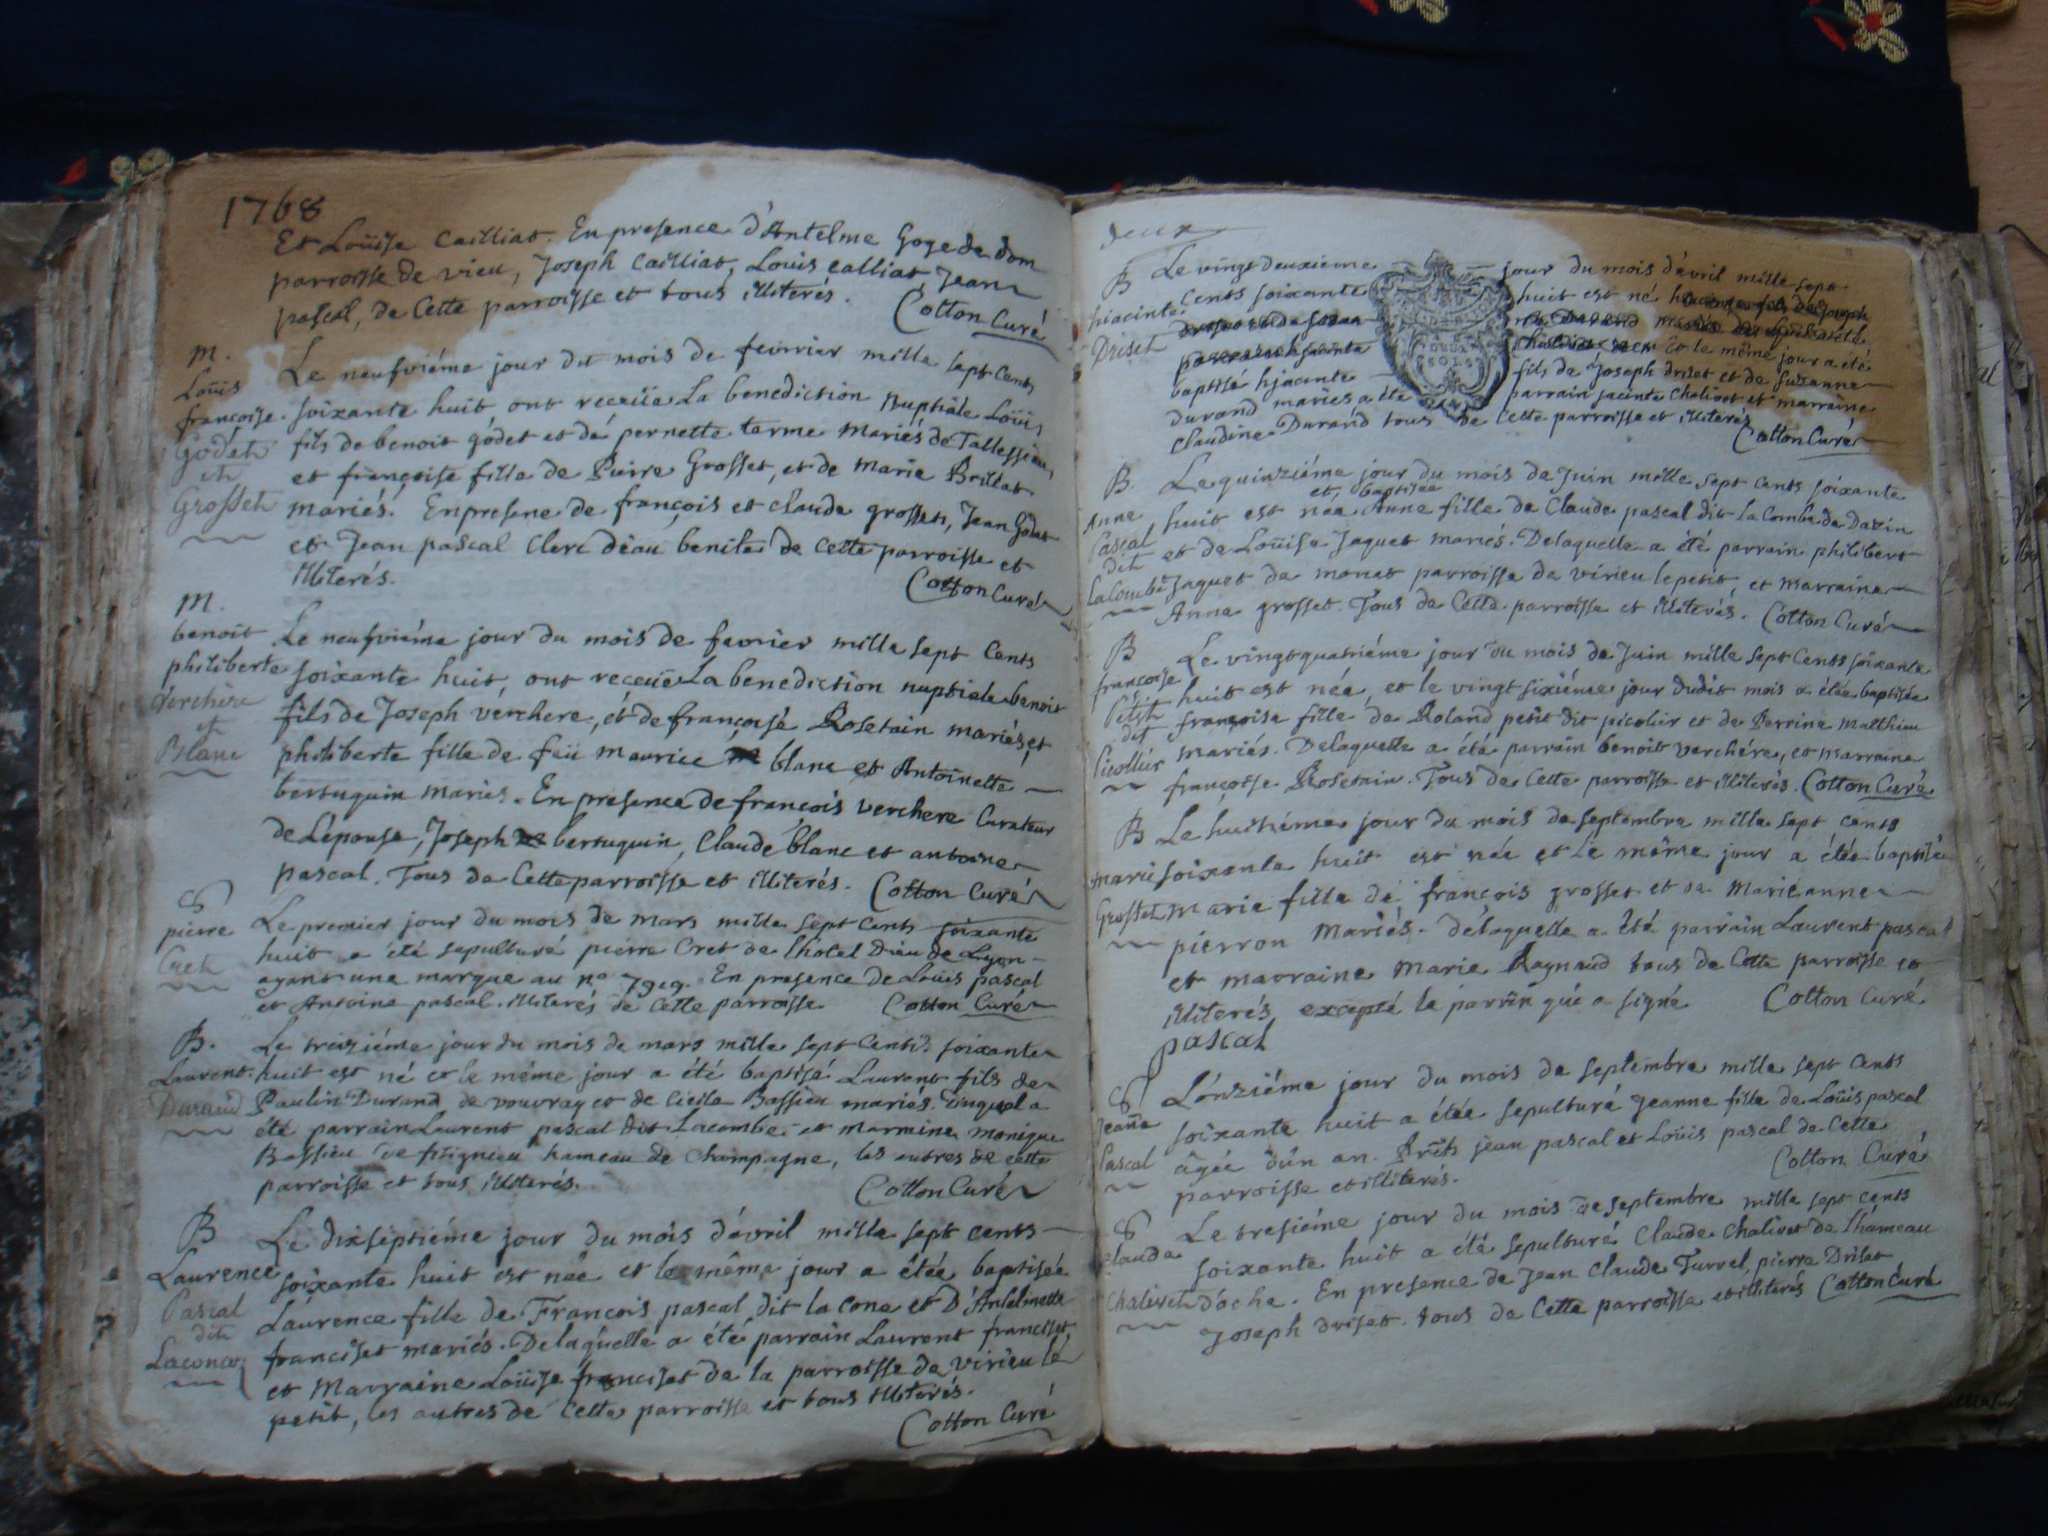 1768
Et Loüise Cailliat. En presence d'Antelme Goge de dom
parroisse de vieu, Joseph Cailliat, Louis Calliat, Jean
pascal, de Cette parroisse et tous illiterés.
Cotton Curé
M.
Loüis
françoise
Godet
et
Grosset
Le neufviéme jour du mois de fevrier mille sept Cents
soixante huit, ont receüe La benediction Nuptiale Loüis
fils de benoit godet et de pernette tarme Mariés de Tallessieu,
et françoise fille de Pierre Grosset, et de Marie Brillat
mariés. En presene de françois et claude grosset, Jean Godet
et Jean pascal Clerc d'eau benite de Cette parroisse et
illiterés.
Cotton Curé
M.
benoit
philiberte
Verchère
et
Blanc
Le neufviéme jour du mois de fevrier mille sept Cents
soixante huit, ont receüe La benediction nuptiale benoit
fils de Joseph verchere, et de françoise Rosetain mariés, et
philiberte fille de feü maurice blanc et Antoinette
bertuquin mariés. En presence de françois verchere Curateur
de Lepouse, Joseph bertuquin, Claude blanc et antoine
pascal. Tous de Cette parroisse et illiterés. Cotton Curé
S
pierre
Cret
Le premier jour du mois de mars mille sept Cents soixante
huit a été sepulturé pierre Cret de l'hotel Dieu de Lyon
ayant une marque au no 7919. En presence de Loüis pascal
et Antoine pascal. illiterés de Cette parroisse. Cotton Curé
B.
Laurent
Durand
Le treiziéme jour du mois de mars mille sept Cents soixante
huit est né et le même jour a été baptisé Laurent fils de
Paulin Durand de vouvray et de Cicile Bassieu mariés. Duquel a
été parrain Laurent pascal dit Lacombe et Marraine Monique
Bassieu de hameau de Champagne, les autres de cette
parroisse et tous illiterés.
Cotton Curé
B
Laurence
Pascal
dit
Lacona
Le dixseptiéme jour du mois d'évril mille sept cents
soixante huit est née et le même jour a étée baptisée
Laurence fille de François pascal dit la cona et D'Antelmette
franciset mariés. Delaquelle a été parrain Laurent franciset
et Marraine Loüise franciset de la parroisse de virieu le
petit, les autres de Cette parroisse et tous illiterés.
Cotton Curé
deux
B
hiacinte
Driset
Le vingt deuxieme jour du mois d'évril mille sept
Cents soixante huit est né
et le même jour a été
baptisé hjacinte fils de Joseph driset et de suzanne
durand mariés a été parrain jacinte chalivet et marraine
claudine Durand tous de Cette parroisse et illiterés
Cotton Curé
DEUX
SOLS
B.
Anne
Pascal
dit
La Combe
Le quinziéme jour du mois de Juin mille sept cents soixante
et baptisée
huit est née Anne fille de Claude pascal dit la Combe de Dazin
et de Loüise Jaquet mariés. Delaquelle a été parrain philibert
Jaquet de monet parroisse de virieu lepetit, et Marraine
Anne grosset. Tous de Cette parroisse et illiterés. Cotton Curé
B
françoise
Petit
dit
Picollir
Le vingtquatriéme jour du mois de Juin mille sept Cents soixante
huit est née, et le vingt sixiéme jour dudit mois a étée baptisée
françoise fille de Roland petit dit picolir et de Perrine Matthieu
mariés. Delaquelle a été parrain benoit verchére, et marraine
françoise Rosetain. Tous de Cette parroisse et illiterés. Cotton Curé
B
Marie
Grosset
Le huitiéme jour du mois de septembre mille sept cents
soixante huit est née et le même jour a étée baptisée
Marie fille de françois grosset et de Marieanne
pierron Mariés. delaquelle a été parrain Laurent pascal
et marraine Marie Raynaud tous de Cette parroisse et
illiterés, excepté le parrin qui a signé Cotton Curé
pascal
S
Jeañe
Pascal
L'ónziéme jour du mois de septembre mille sept cents
soixante huit a étée sepulturé Jeanne fille de Loüis pascal
âgée d'un an. Prêts jean pascal et Loüis pascal de Cette
parroisse et illiterés. Cotton Curé
S
Claude
Chalivet
Le tresiéme jour du mois de septembre mille sept cents
soixante huit a été sepulturé Claude Chalivet de l'hameau
d'oche. En presence de Jean Claude Turrel, pierre Driset
Joseph driset. tous de Cette parroisse et illiterés Cotton Curé